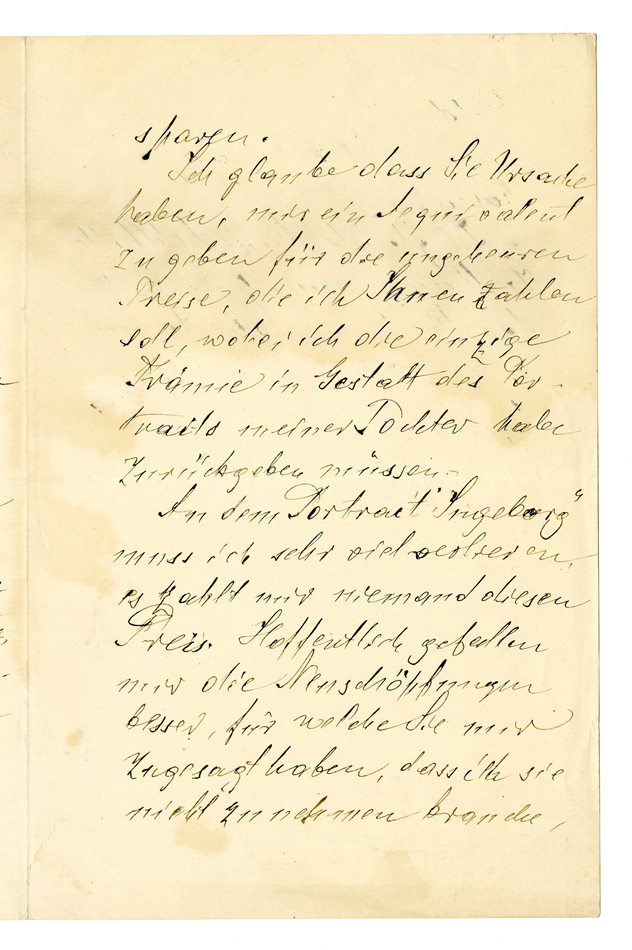 sparen.
Ich glaube dass Sie Ursache
haben, mir ein Aequivalent
zu geben für die ungeheuren
Preise, die ich Ihnen zahlen
soll, wobei ich die einzige
Prämie in Gestalt des Por-
traits meiner Tochter habe
zurückgeben müssen.-
An dem Portrait "Ingeborg"
muss ich sehr viel verlieren,
es zahlt mir niemand diesen
Preis. Hoffentlich gefallen
mir die Neuschöpfungen
besser, für welche Sie mir
zugesagt haben, dass ich sie
nicht zu nehmen brauche,